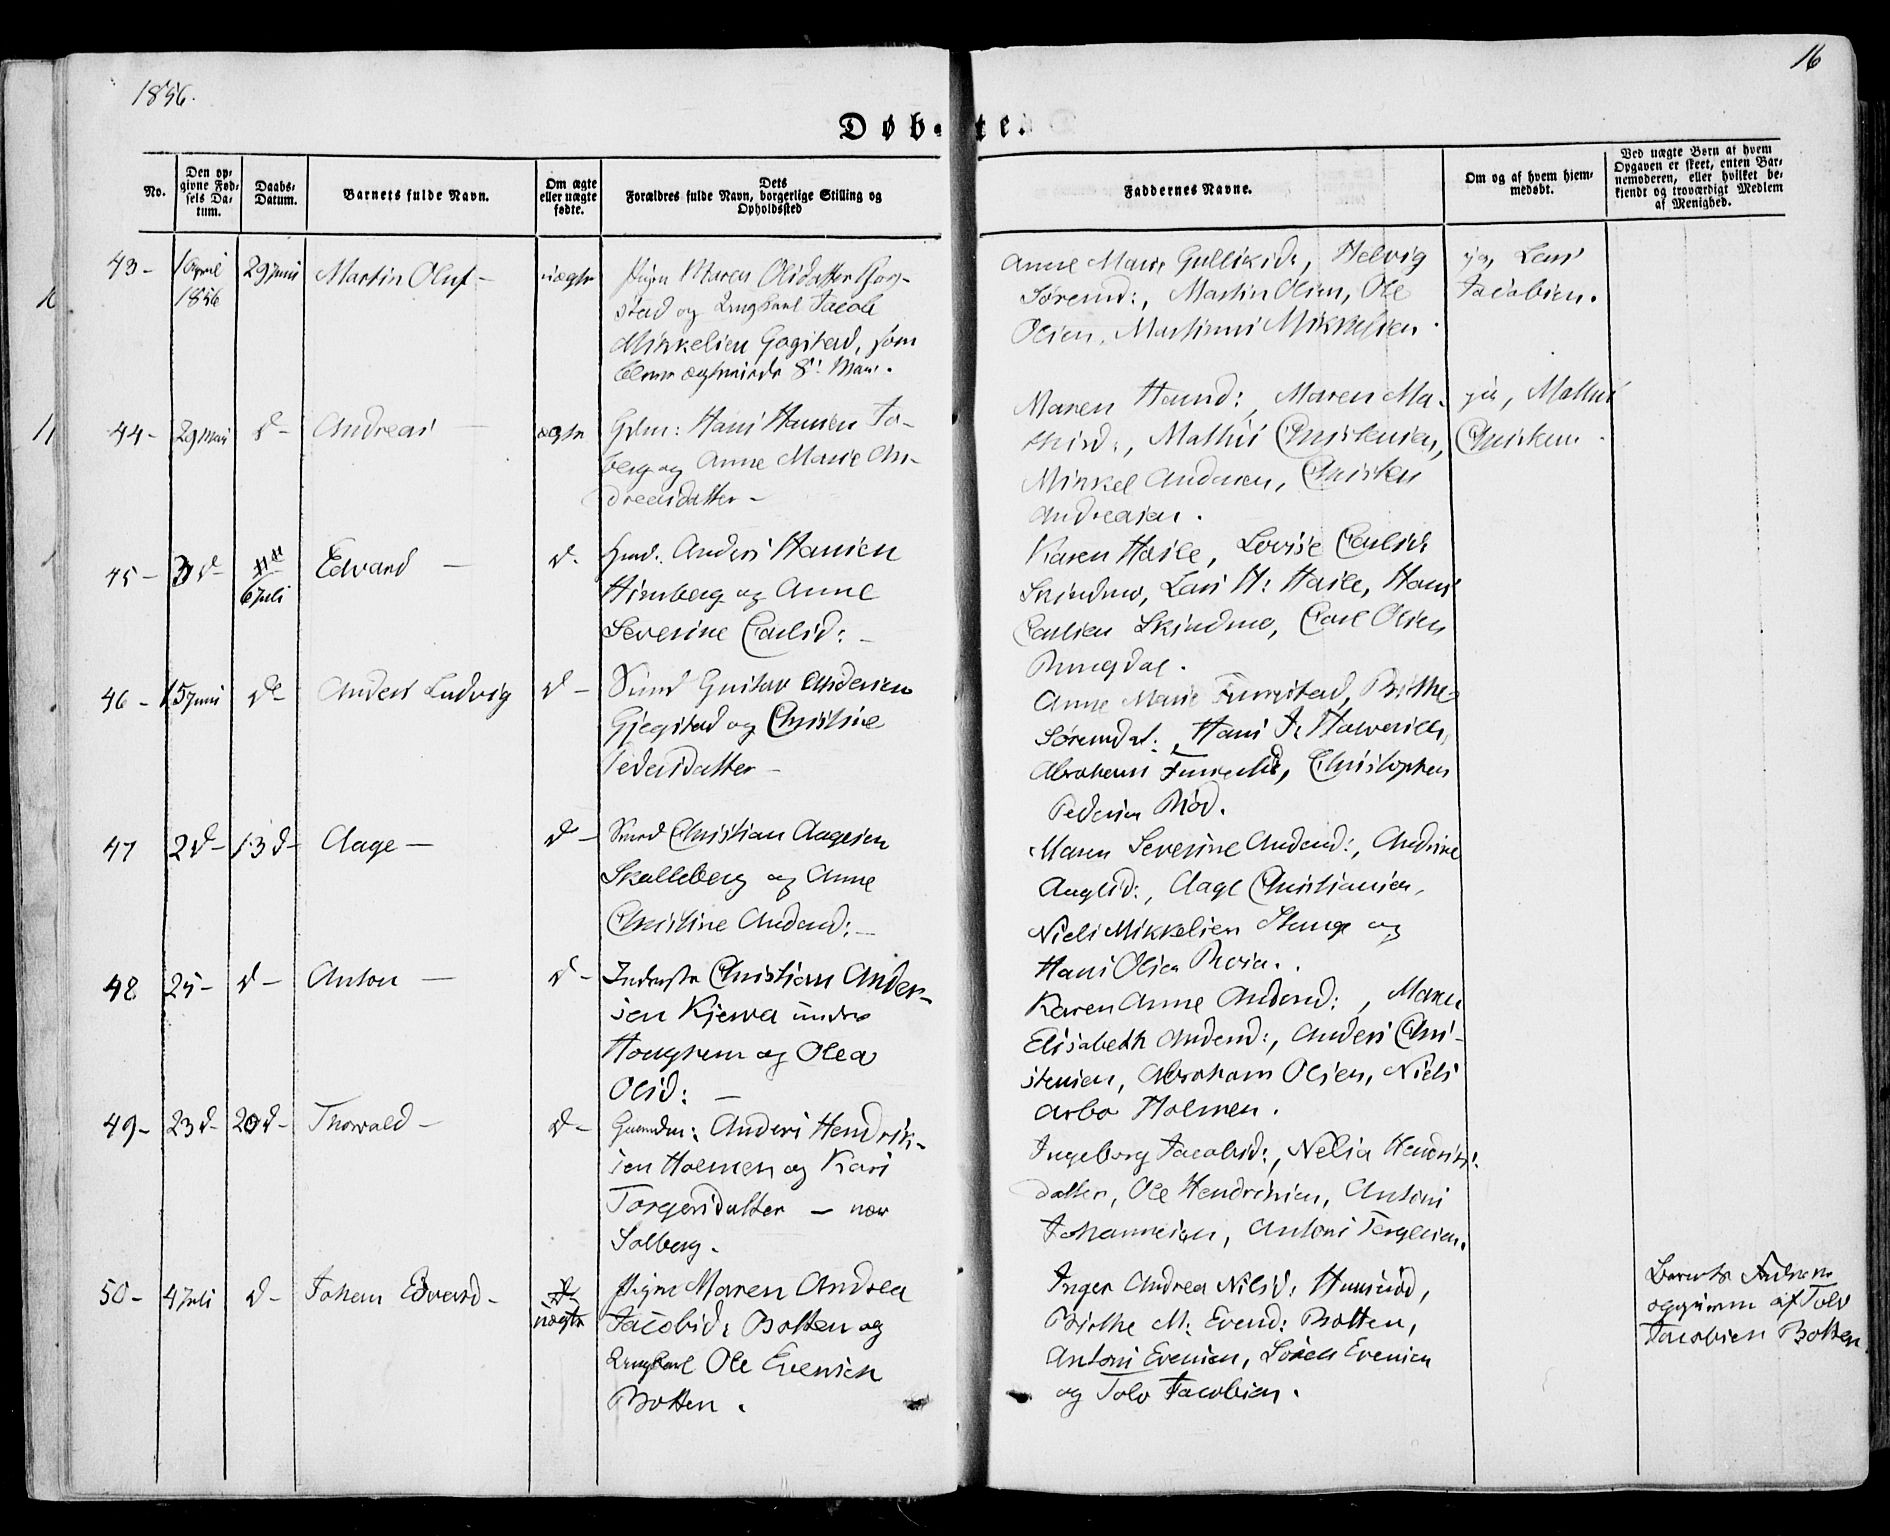 1856.
16
Døbte.
No.
Den op-
givne Fød-
sels Da-
tum.
Daabs-
Datum.
Barnets fulde Navn.
Om ægte
eller uægte
fødte.
Dets
Forældres fulde Navn, borgerlige Stilling og
Opholdssted
Faddernes Navne.
Om og af hvem hjem-
medøbt.
Ved uægte Børn af hvem
Opgaven er skeet, enten Bar-
nemoderen, eller hvilket be-
kjendt og troværdigt Medlem
af Menighed.
43 -
1 April
1856
29 Juni
Martin Oluf -
uægte
Pigen Maren Olsdatter Gog-
stad og Ungkarl Jacob
Mikkelsen Gogstad, som
Maren
Anne Marie Gulliksd:, Helvig
Sørensd:, Martin Olsen, Ole
Olsen, Martinus Mikkelsen.
ja, Lars
Jacobsen.
44 -
29 Mai
d -
Andreas -
ægte
Gdm: Hans Hansen Fo-
berg og Anne Marie An-
dreasdatter -
Maren Hansd:, Maren Ma-
thisd:, Mathis Christensen,
Mikkel Andersen, Christen
Andreasen.
ja, Mathis
Christens.
45 -
3 d -
6 Juli
Edvard -
d.
Husm. Anders Hansen
Himberg og Anne
Severine Carlsd: -
Karen Haile, Lovise Carlsd:
Skindmo, Lars H: Haile, Hans
Carlsen Skindmo, Carl Olsen
Ringdal.
46 -
15 Juni
d -
Anders Ludvig
d -
Smed Gustav Andersen
Gjegstad og Christine
Pedersdatter -
Anne Marie Furustad, Birthe
Sørensdt:, Hans J: Halvorsen,
Abraham Christophen
Pedersen Rød.
47
2 d -
13 d -
Aage -
d -
Smed Christian Aagesen
Skalleberg og Anne
Christine Andersd: -
Maren Severine Andersd:, Andrine
Aagesd:, Aage Christiansen,
Niels Mikkelsen Hauge og
Hans Olsen
48
25 -
d -
Anton -
d -
Inderste Christian Ander-
sen Kjerra under
Haughem og Olea
Olsd: -
Karen Anne Andersd:, Maren
Elisabeth Andersd:, Anders Chri-
stensen, Abraham Olsen, Niels
Arbo Holmen.
49 -
23 d -
20 d -
Thorvald -
d -
Gaardm: Anders Hendrik-
sen Holmen og Kari
Torgersdatter - nær
Solberg.
Ingeborg Jacobsd:, Nelia Hendriks-
datter, Ole Hendriksen, Anton
Johannesen, Anton Torgersen.
50 -
4 Juli
d -
Johan Edvard -
uægte
Pigen Maren Andrea
Jacobsd: Botten og
Ungkarl Ole Evensen
Botten.
Inger Andrea Nilsd:
Birthe M: Evensd: Botten,
Anton Evensen, Søren Evensen
og Tolv Jacobsen.
Barnets
opgiven af Tolv
Jacobsen Botten